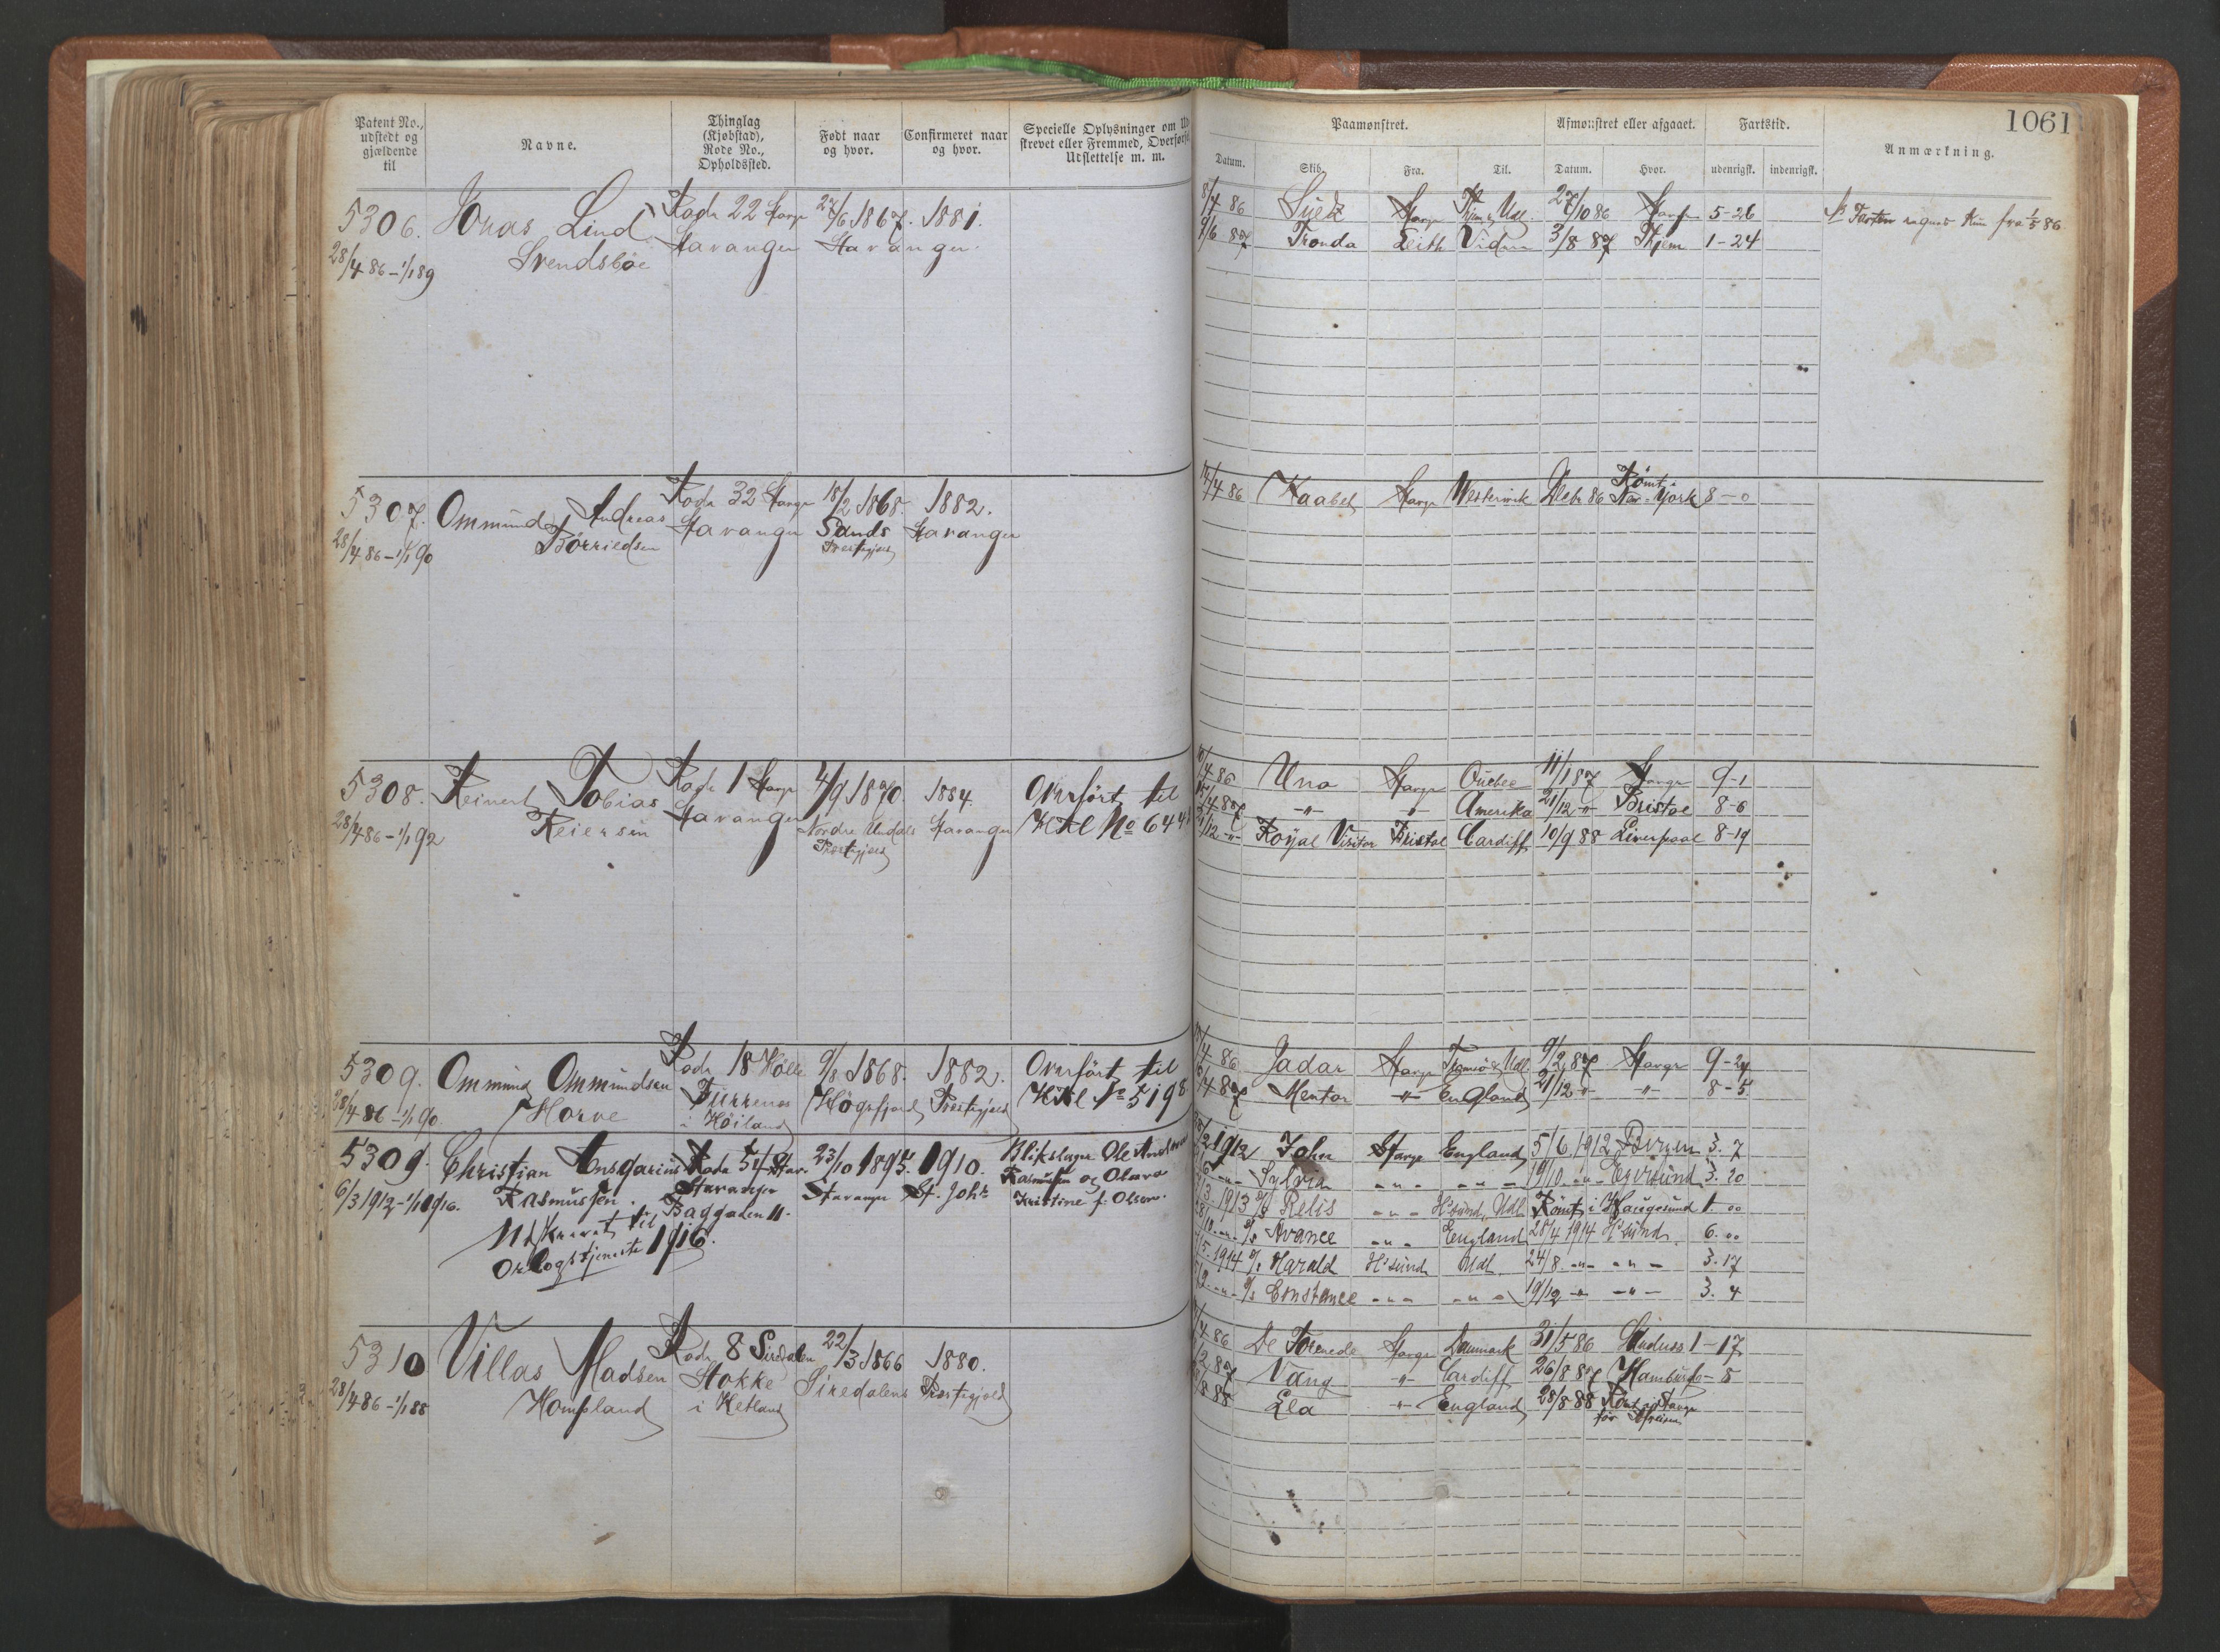 1061
Patent No., udstedt og gjældende til
Navne.
Thinglag (Kjøbstad), Rode No., Opholdssted.
Født naar og hvor.
Confirmeret naar og hvor.
Specielle Oplysninger om Ud
strevet eller Fremmed, Overførsel
Udslettelse m. m.
Paamønstret.
Afmønstret eller afgaaet.
Fartstid.
Anmærkning.
Datum.
Skib.
Fra.
Til.
Datum.
Hvor.
udenrigsk.
indenrigsk.
5306. Jonas Lind Rode 22 Stavgr 27/6 1867. 1881.
28/4 86 - 1/1 89 Svendsbøe Stavanger Stavanger
8/4 86 Suez Stavgr 27/10 86 Stavgr 5-26
9/6 87 Tronda Leith 3/8 87 Hjem 1-24
regnes kun fra 1/5 86
5307. Ommund Andreas Rode 32 Stavgr 18/2 1868. 1882.
28/4 86 - 1/1 90 Børriedsen Stavanger Sands Stavanger
Præstegjeld
14/4 86 Kaabel Stavgr Westerwik 86 Rømt i New-York 8-0
5308. Reinert Tobias Rode 1 Stavgr 4/9 1870. 1884. Overført til
28/4 86 - 1/1 92 Reiersen Stavanger Nordre Undals Stavanger HRl No 644
Præstegjeld
4 86 Una Stavgr Quebec 11/1 87 Stavgr 9-1
4 87 -"- " Amerika 21/12 -"- Bristol 8-6
/12 -"- Royal Visitor Bristol Cardiff 10/9 88 Liverpool 8-19
5309. Ommund Ommundsen Rode 18 Hølle 9/8 1868. 1882. Overført til
28/4 86 - 1/1 90 Horve i Høiland Høgsfjord Præstegjeld HRl No 5198
4 86 Jadar Stavgr Tromsø & Udl. 9/2 87 Stavgr 9-24
4 87 Mentor -"- England 21/12 -"- -"- 8-5
5309. Christian Ansgarius Rode 54 Stav. 23/10 1895. 1910. Blikslager Ole Andreas
6/3 1912 - 1/1 1916. Rasmussen. Stavanger Stavanger St. Joh's Rasmussen og Olava
Baggaden 11. Kristine f. Olsen.
Udskrevet til
Orlogstjeneste 1916.
2 1912 John Stavgr England 5/6 1912 Bergen 3. 7
-"- Sylvia -"- -"- 19/10 -"- Egersund 3. 20
3 1913 Relis -"- H'sund, Udl. Rømt i Haugesund 1. 00
/10 -"- Avance -"- England 28/4 1914 H'sund 6. 00
5. 1914 Harald H'sund Udl. 24/8 -"- -"- 3. 17
9. -"- Constance -"- -"- 19/12 -"- -"- 3. 4
5310 Villas Madsen Rode 8 Siredalen 22/3 1866 1880.
28/4 86 - 1/1 88 Hompland Stokke i Hetland Siredalens Præstegjeld
4 86 De Forenede Stavgr Danmark 31/5 86 1-17
2 87 Vang -"- Cardiff 26/8 87 Hamburg - 5
8 88 Lea -"- England 28/8 88 Rømt i Stavgr
før Afreisen